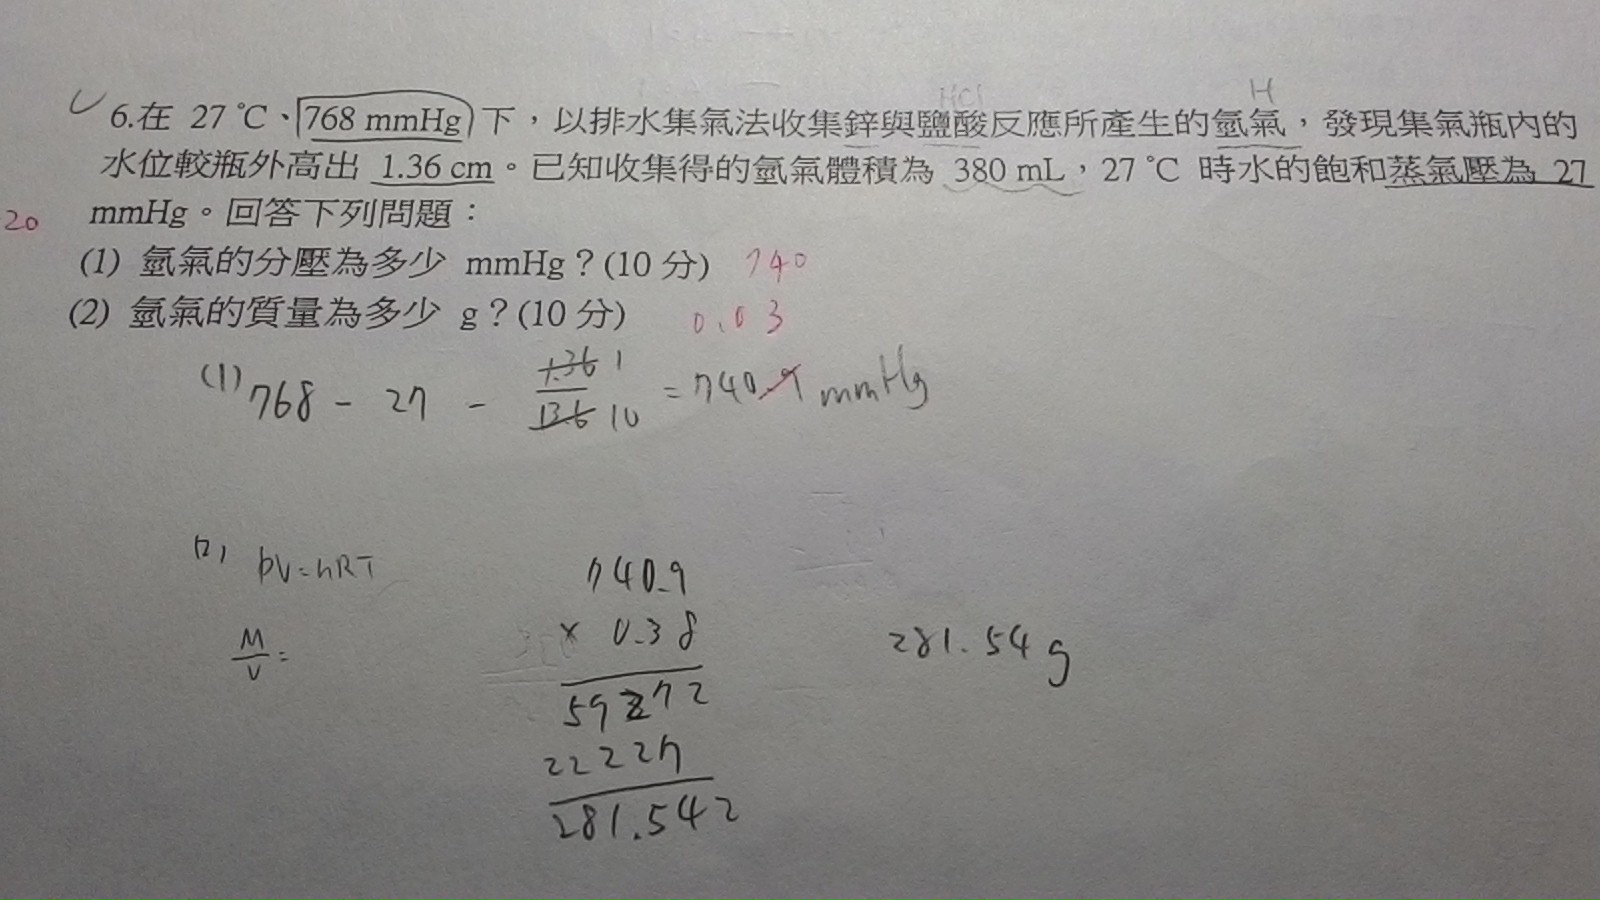 HCl H
6.在 27 ℃、768 mmHg 下，以排水集氣法收集鋅與鹽酸反應所產生的氫氣，發現集氣瓶內的
水位較瓶外高出 1.36 cm。已知收集得的氫氣體積為 380 mL，27 ℃ 時水的飽和蒸氣壓為 27
mmHg。回答下列問題：
20
(1) 氫氣的分壓為多少 mmHg？(10 分) 740
(2) 氫氣的質量為多少 g？(10 分) 0.03
(1) 768 - 27 - 1.36 1 / 13.6 10 = 740.9 mmHg
(2) PV=nRT
M/V =
740.9
x 0.38
59272
22227
281.542
281.54 g